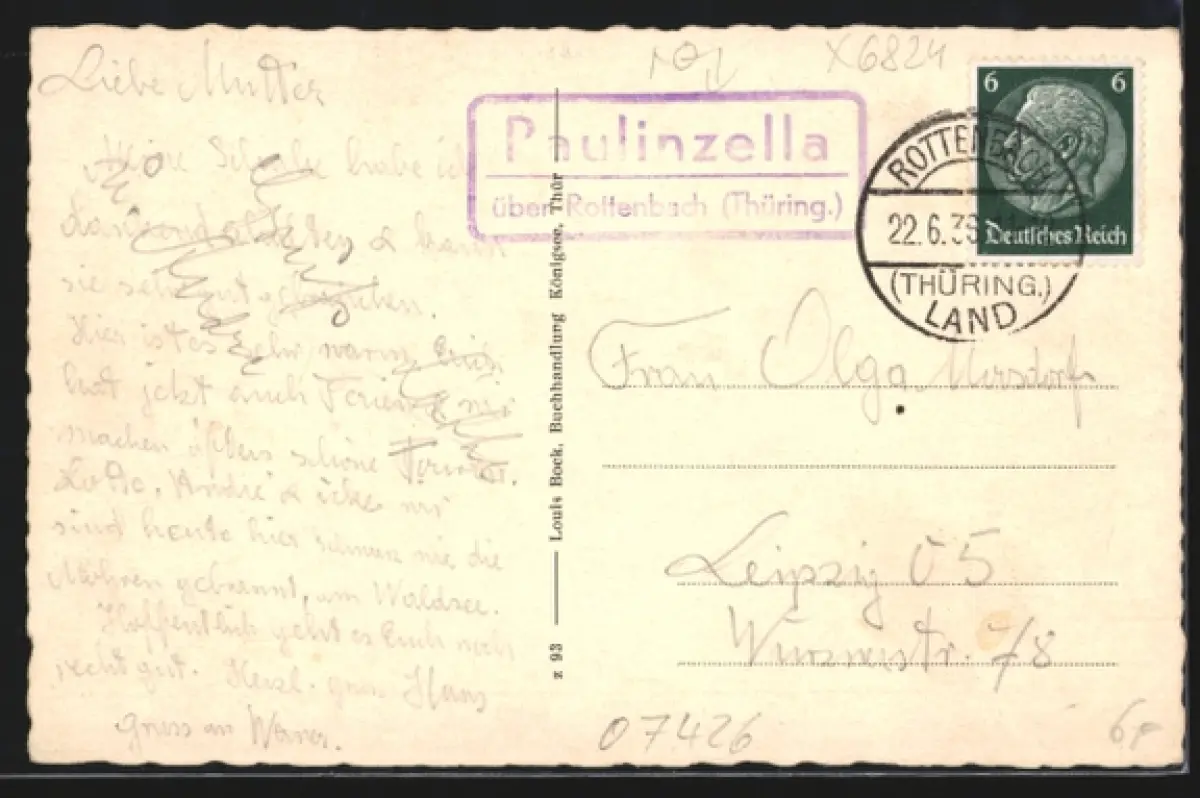 Liebe Mutter
Meine Schuhe habe ich
& kann
sie sehr gut gebrauchen.
Hier ist es sehr warm, Erich
hat jetzt auch Ferien & wir
machen öfters schöne
Lotto, André & wir
sind heute hier schwarz wie die
Mohren gebrannt, am Waldsee.
Hoffentlich geht es Euch noch
recht gut. Herzl. Hans
Gruss an Werner.
z 93 — Louis Bock, Buchhandlung Königsee, Thür
X6824
Paulinzella
über Rottenbach (Thüring.)
6 6
Deutsches Reich
ROTTENBACH
22.6.36
(THÜRING.)
LAND
Frau Olga Morsdorf
Leipzig O 5
Wurznerstr. 78
07426
6,-